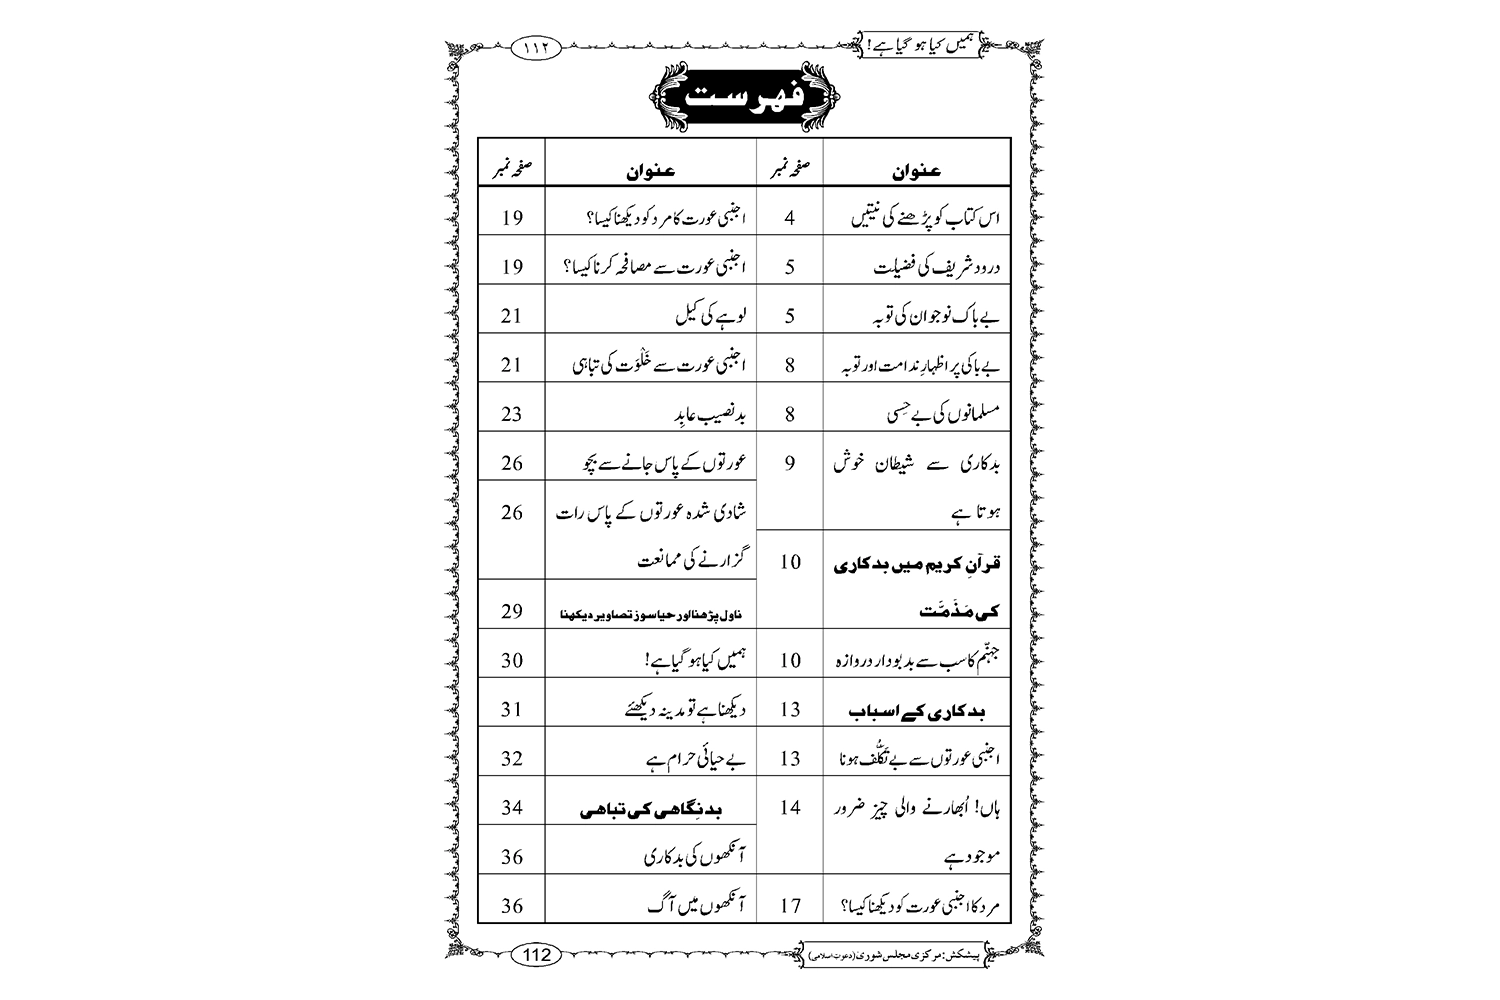 ہمیں کیا ہو گیا ہے!
۱۱۲
فہرست
عنوان
صفحہ نمبر
عنوان
صفحہ نمبر
اس کتاب کو پڑھنے کی نیتیں
4
درود شریف کی فضیلت
5
بے باک نوجوان کی توبہ
5
بے باکی پر اظہارِ ندامت اور توبہ
8
مسلمانوں کی بے حِسی
8
بدکاری سے شیطان خوش
9
ہوتا ہے
قرآنِ کریم میں بدکاری
10
کی مَذَمَّت
جہنّم کا سب سے بدبودار دروازہ
10
بدکاری کے اسباب
13
اجنبی عورتوں سے بے تَکَلُّف ہونا
13
ہاں! اُبھارنے والی چیز ضرور
14
موجود ہے
مرد کا اجنبی عورت کو دیکھنا کیسا؟
17
اجنبی عورت کا مرد کو دیکھنا کیسا؟
19
اجنبی عورت سے مصافحہ کرنا کیسا؟
19
لوہے کی کیل
21
اجنبی عورت سے خَلْوَت کی تباہی
21
بدنصیب عابِد
23
عورتوں کے پاس جانے سے بچو
26
شادی شدہ عورتوں کے پاس رات
26
گزارنے کی ممانعت
ناول پڑھنا اور حیا سوز تصاویر دیکھنا
29
ہمیں کیا ہو گیا ہے!
30
دیکھنا ہے تو مدینہ دیکھئے
31
بے حیائی حرام ہے
32
بدنِگاهی کی تباهی
34
آنکھوں کی بدکاری
36
آنکھوں میں آگ
36
پیشکش: مرکزی مجلس شوریٰ (دعوتِ اسلامی)
112